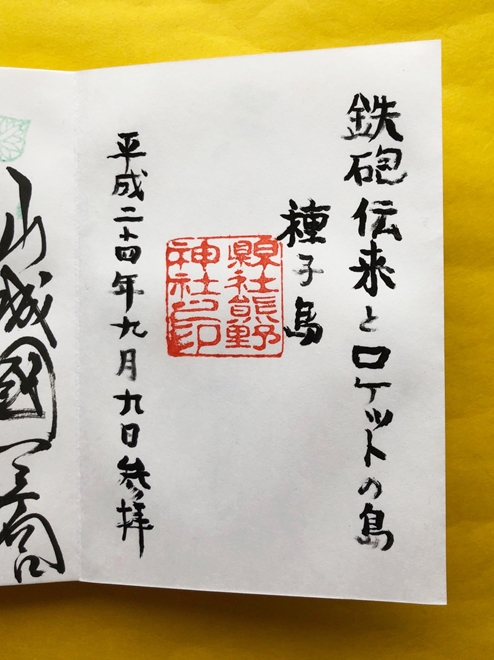 鉄砲伝来とロケットの島
種子島
縣社熊野
神社之印
平成二十四年九月九日参拝
山城國一宮